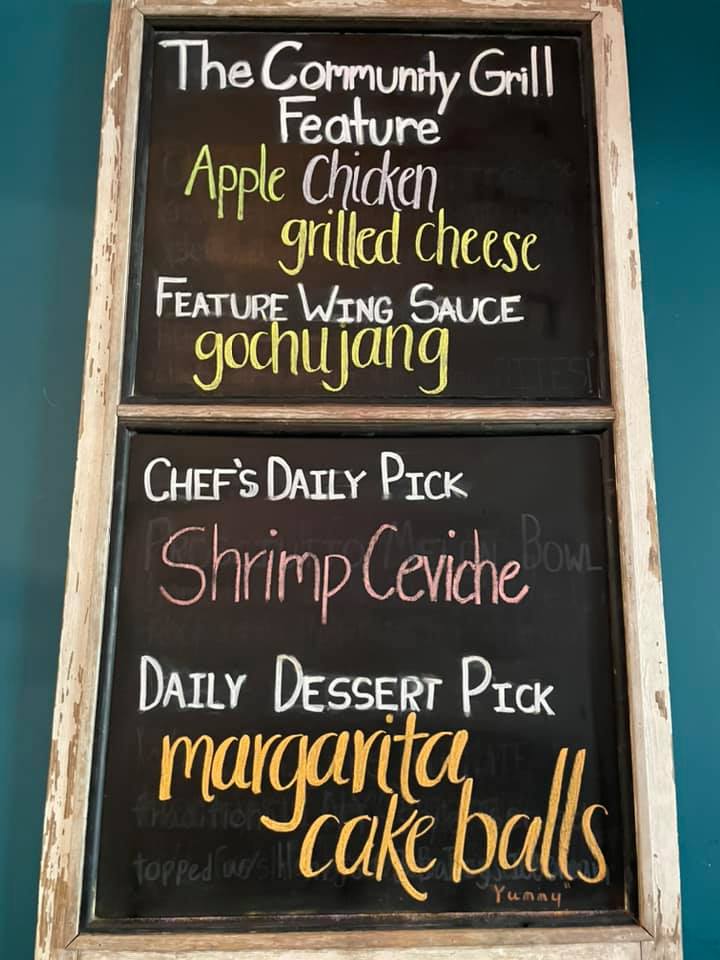 The Community Grill
Feature
Apple Chicken
grilled cheese
FEATURE WING SAUCE
gochujang
CHEF'S DAILY PICK
Shrimp Ceviche
DAILY DESSERT PICK
margarita
cake balls
Yummy"